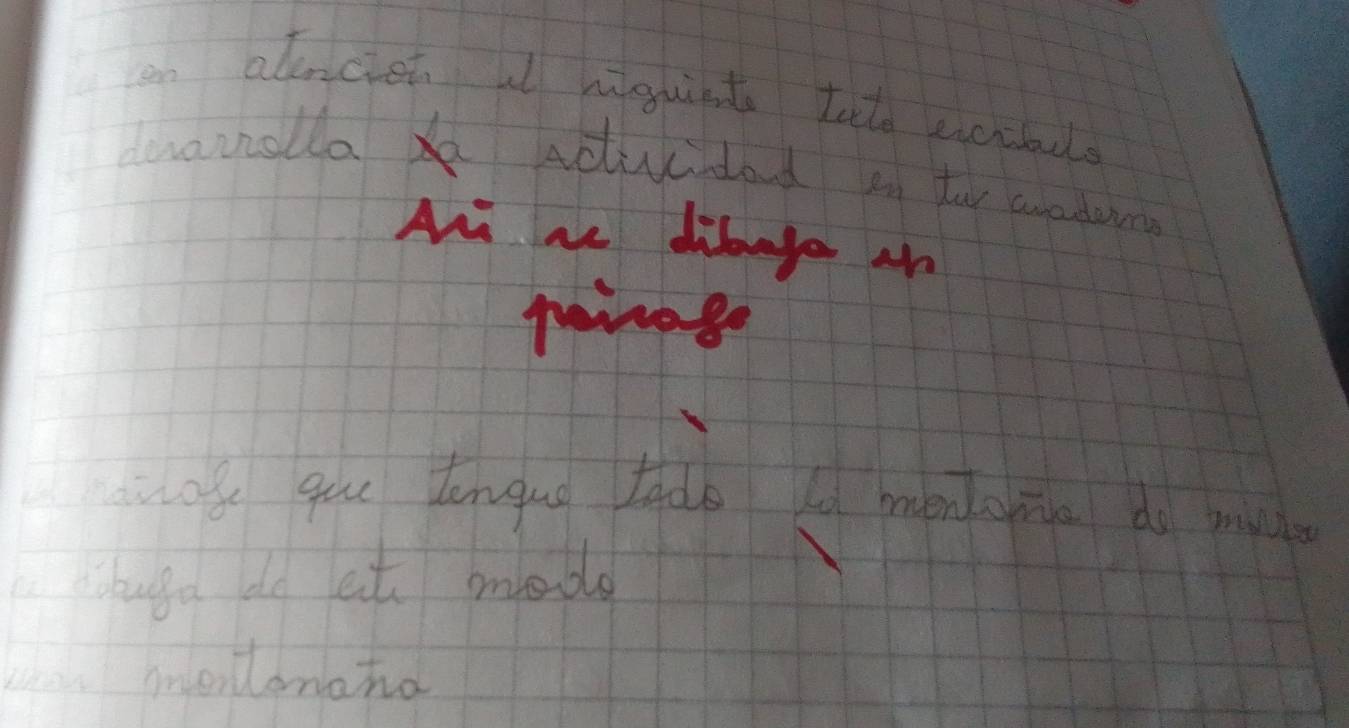 con atencion al siguiente texto escribelo
desarrolla la actividad en tu cuaderno
Asi se dibuja un
paisaje
paisaje que tengue todo la montaña de misma
se dibuja de este modo
una montanaña